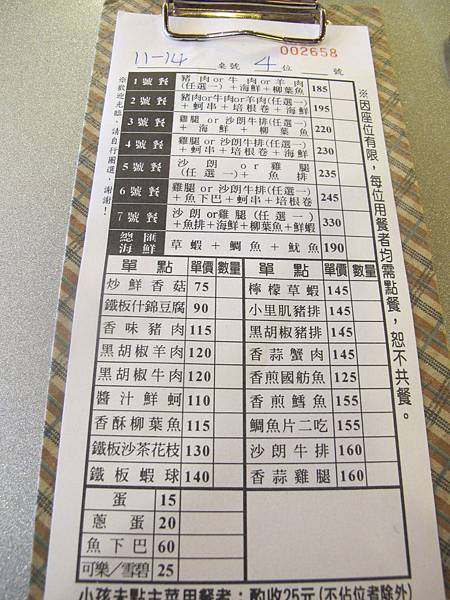 002658
11-14 桌號 4 位 號
1號餐 豬肉or牛肉or羊肉(任選一)+海鮮+柳葉魚 185
2號餐 豬肉or牛肉or羊肉(任選一)+蚵串+培根卷+海鮮 195
3號餐 雞腿 or 沙朗牛排(任選一)+海鮮+柳葉魚 220
4號餐 雞腿 or 沙朗牛排(任選一)+蚵串+培根卷+海鮮 230
5號餐 沙朗 or 雞腿(任選一)+魚排 235
6號餐 雞腿 or 沙朗牛排(任選一)+魚下巴+蚵串+培根卷 245
7號餐 沙朗or雞腿(任選一)+魚排+海鮮+柳葉魚+鮮蝦 330
總匯海鮮 草蝦+鯛魚+魷魚 190
單點 單價 數量 單點 單價 數量
炒鮮香菇 75 檸檬草蝦 145
鐵板什錦豆腐 90 小里肌豬排 145
香味豬肉 115 黑胡椒豬排 145
黑胡椒羊肉 120 香蒜蟹肉 145
黑胡椒牛肉 120 香煎國舫魚 125
醬汁鮮蚵 110 香煎鱈魚 155
香酥柳葉魚 115 鯛魚片二吃 155
鐵板沙茶花枝 130 沙朗牛排 160
鐵板蝦球 140 香蒜雞腿 160
蛋 15
蔥蛋 20
魚下巴 60
可樂／雪碧 25
小孩未點主菜用餐者：酌收25元(不佔位者除外)
※歡迎光臨，請自行圈選，謝謝!
※因座位有限，每位用餐者均需點餐，恕不共餐。